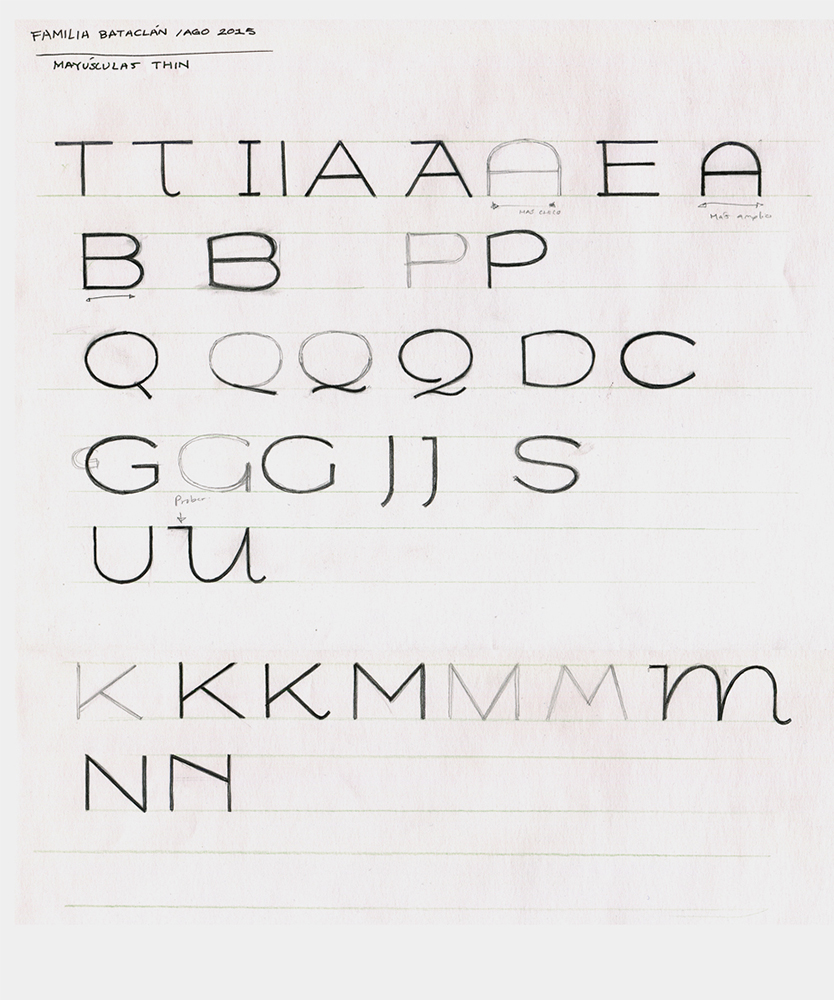 FAMILIA BATACLÁN / AGO 2015
MAYÚSCULAS THIN
T T I I A A A E A
MAS
Más amplio
B B P P
Q Q Q Q D C
G G G G J J S
Probar
U U
K K K M M M m
N N